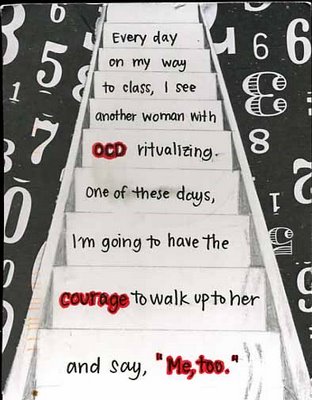 Every day
on my way
to class, I see
another woman with
OCD ritualizing.
One of these days,
I'm going to have the
courage to walk up to her
and say, "Me, too."